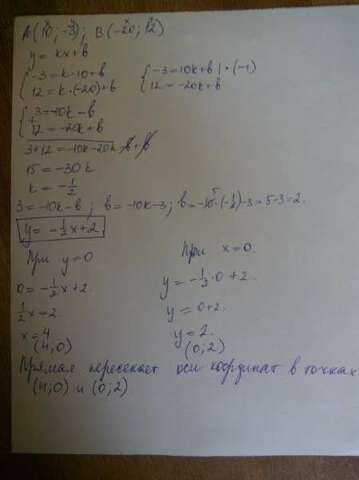 A(10; -3); B(-20; 12)
y = kx + b
{-3 = k·10 + b {-3 = 10k + b | ·(-1)
12 = k·(-20) + b 12 = -20k + b
{3 = -10k - b
+
12 = -20k + b
3 + 12 = -10k - 20k - b + b
15 = -30k
k = -1/2
3 = -10k - b; b = -10k - 3; b = -10·(-1/2) - 3 = 5 - 3 = 2.
y = -1/2x + 2
При y = 0 При x = 0.
0 = -1/2x + 2 y = -1/2·0 + 2.
1/2x = 2 y = 0 + 2.
x = 4 y = 2.
(4; 0) (0; 2)
Прямая пересекает оси координат в точках
(4; 0) и (0; 2)